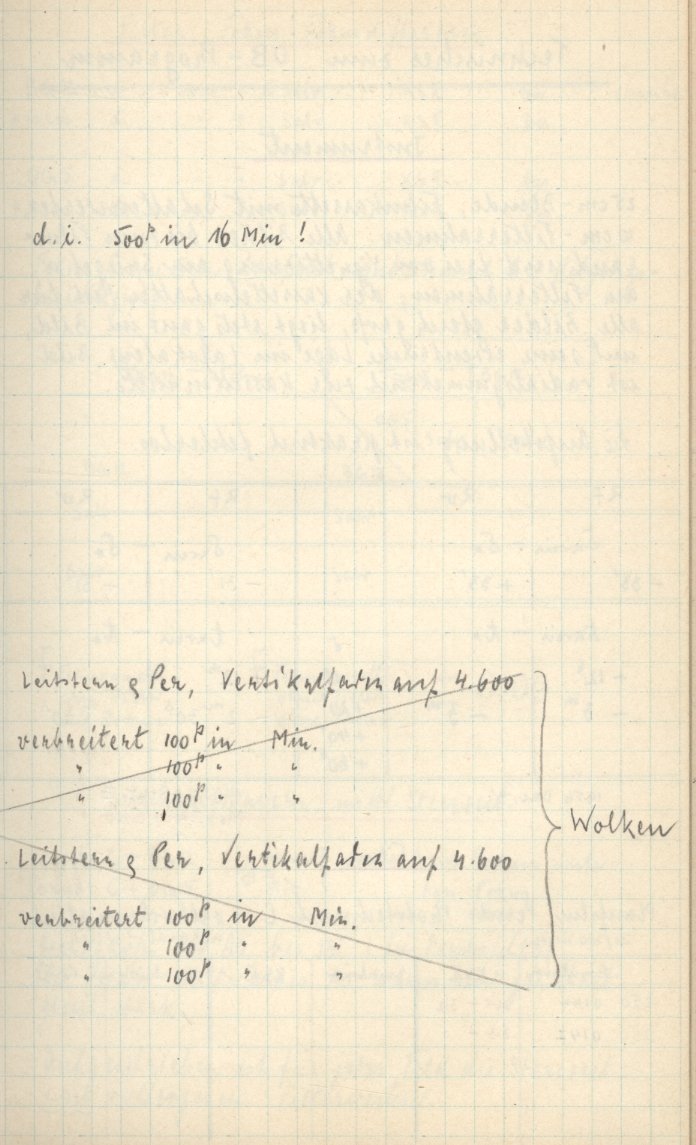 d.i. 500ᵖ in 16 Min!
Leitstern ς Per, Vertikalfaden auf 4.600
verbreitert 100ᵖ in Min.
" 100ᵖ " "
" 100ᵖ " "
Wolken
Leitstern ς Per, Vertikalfaden auf 4.600
verbreitert 100ᵖ in Min.
" 100ᵖ " "
" 100ᵖ " "